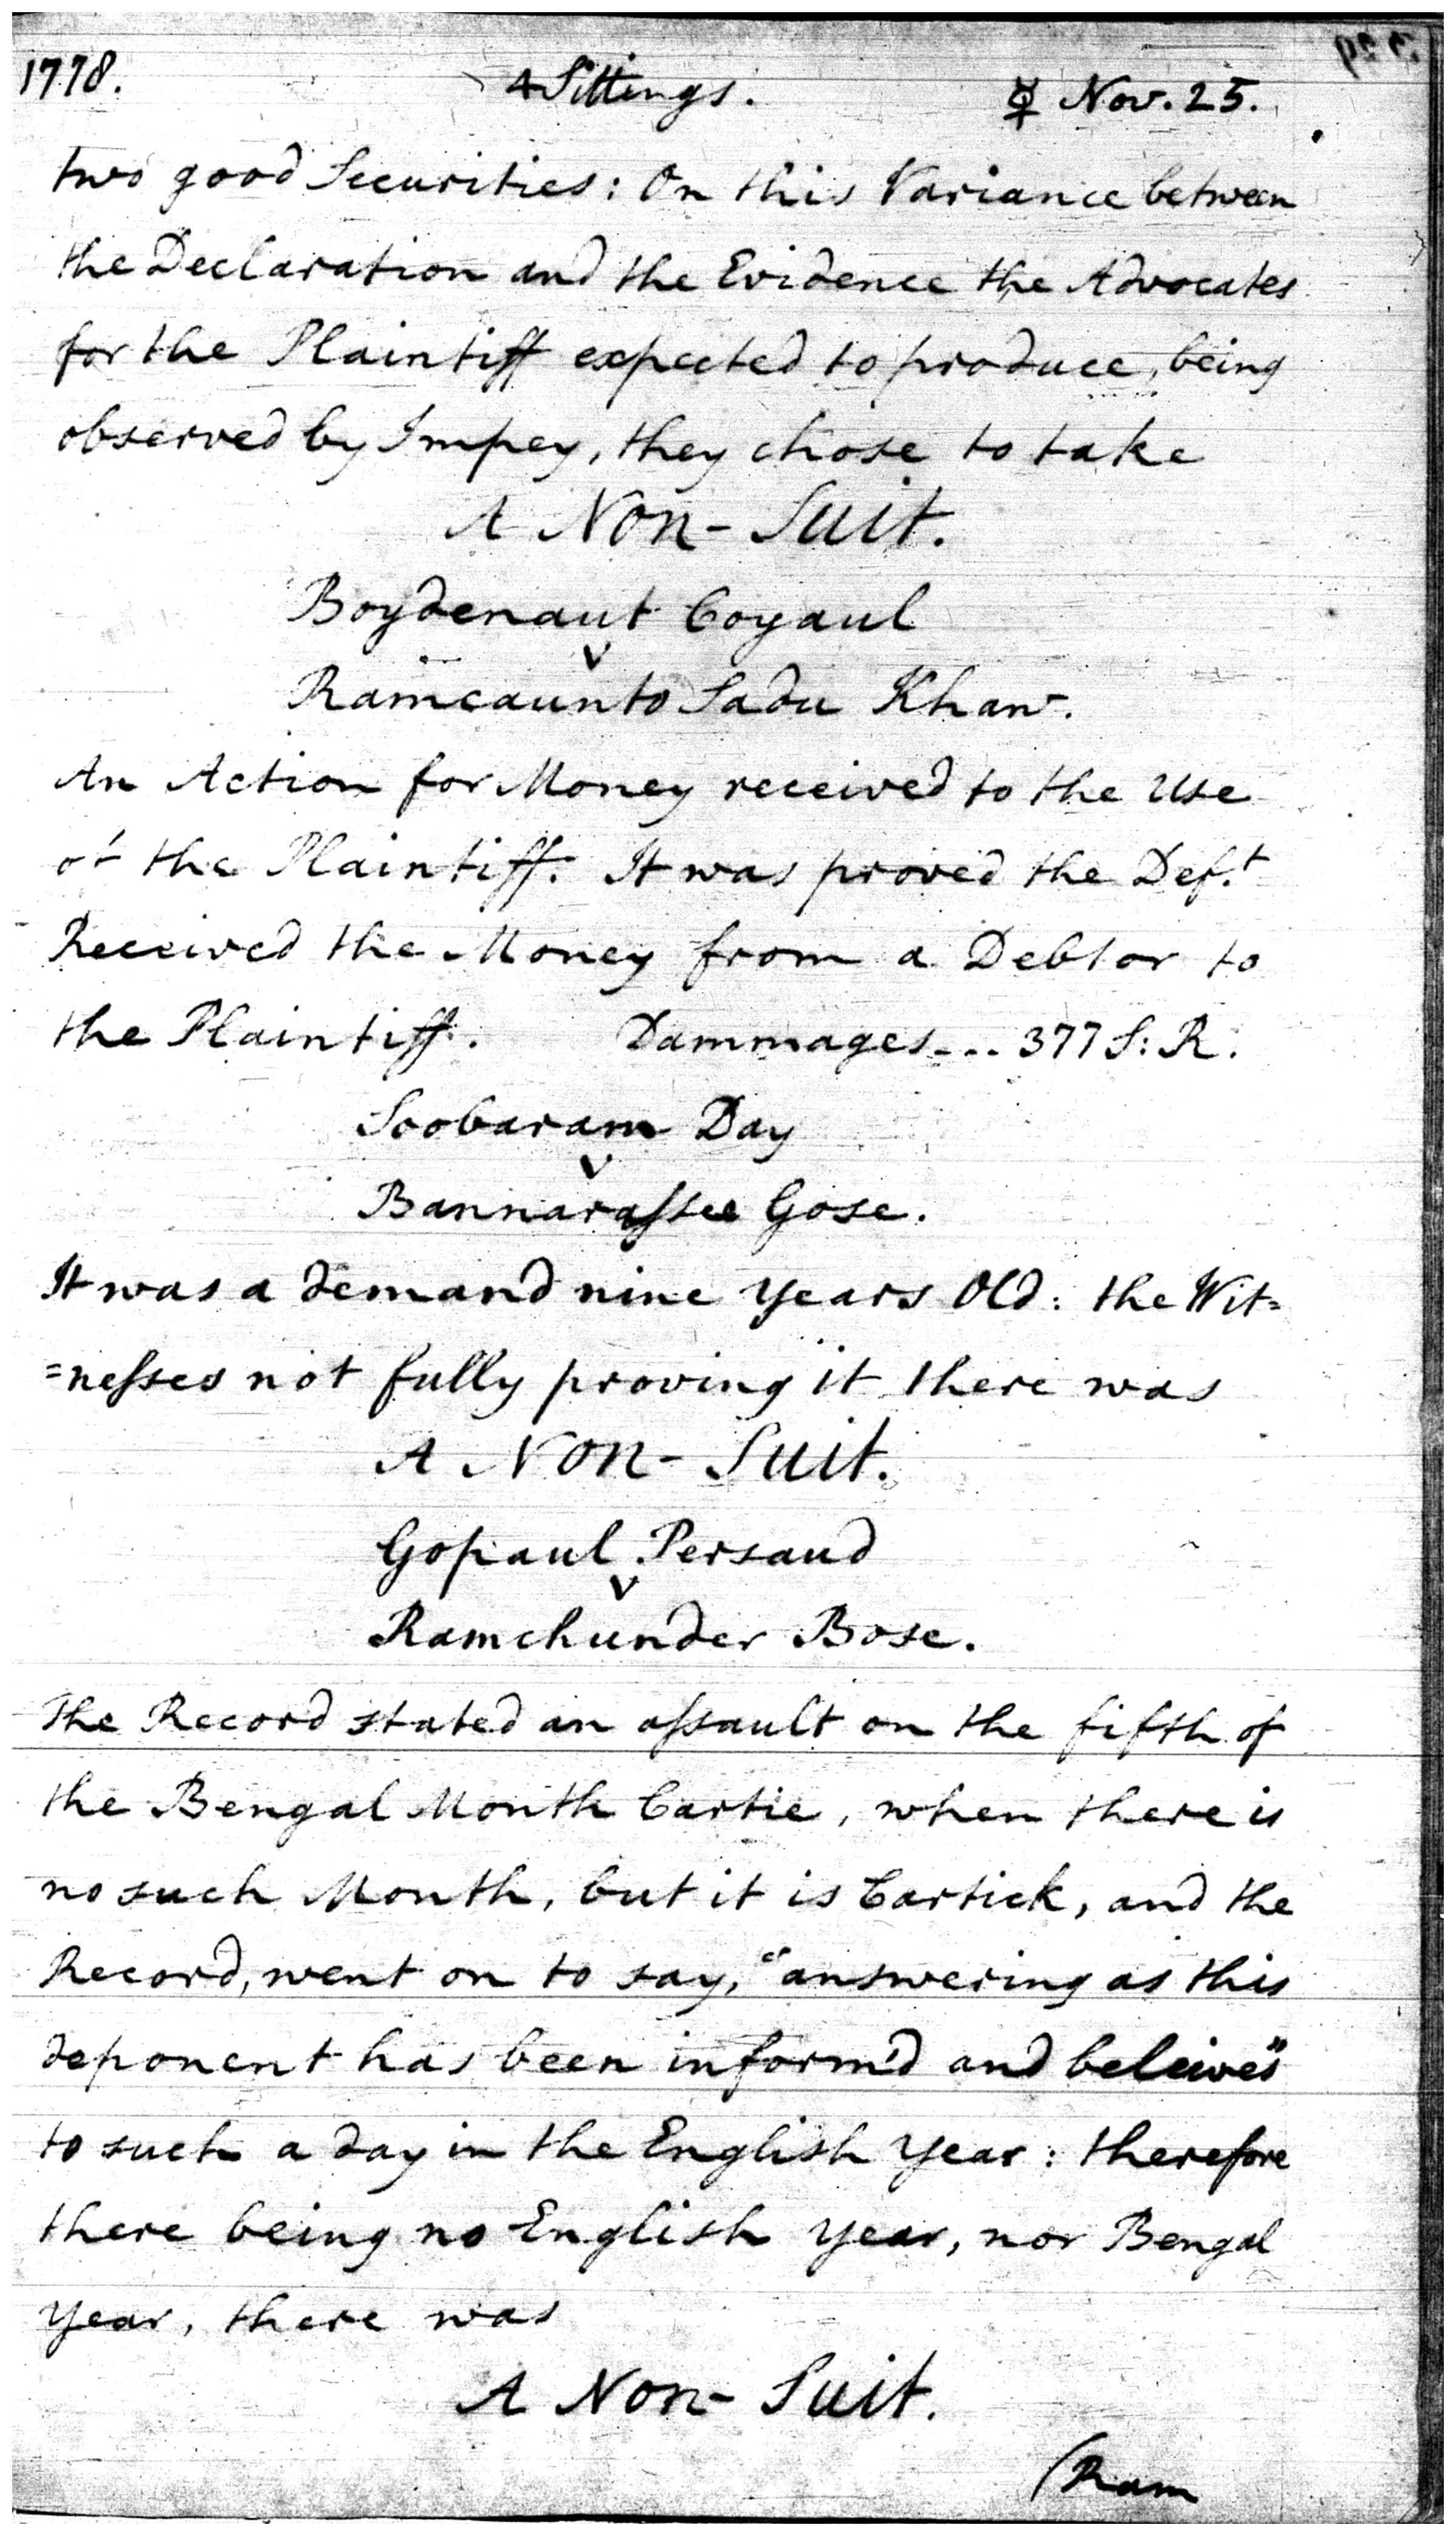 1778. 4 Sittings. ☿ Nov. 25.
two good Securities: On this Variance between
the Declaration and the Evidence the Advocates
for the Plaintiff expected to produce, being
observed by Impey, they chose to take
A Non-Suit.
Boydenaut Coyaul
v
Ramcaunto Sadu Khaw.
An Action for Money received to the Use
of the Plaintiff. It was proved the Def.t
Received the Money from a Debtor to
the Plaintiff. Dammages... 377 S: R.
Soobaram Day
v
Bannarassee Gose.
It was a demand nine years Old: the Wit=
=nesses not fully proving it there was
A Non-Suit.
Gopaul Persaud
v
Ramchunder Bose.
The Record stated an assault on the fifth of
the Bengal Month Cartie, when there is
no such Month, but it is Cartick, and the
Record, went on to say, "answering as this
deponent has been inform'd and beleives"
to such a day in the English Year: therefore
there being no English Year, nor Bengal
Year, there was
A Non-Suit.
(Ram